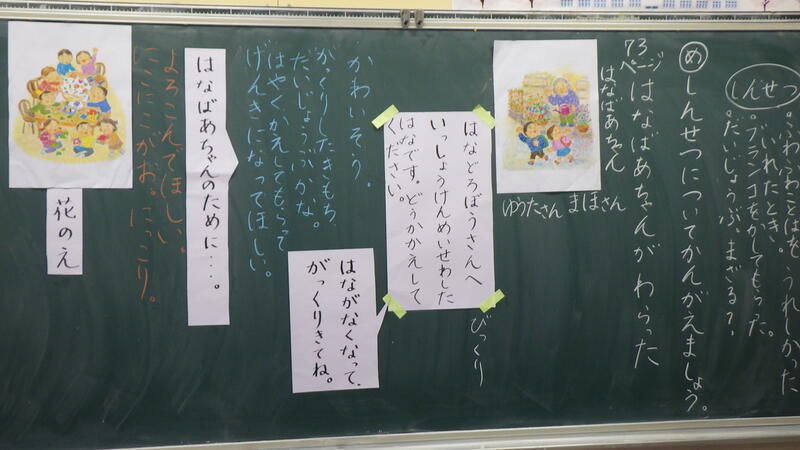 しんせつ
・ふわふわことばを
いれたとき。
うれしかった
・ブランコをかしてもらった。
・だいじょうぶ、まざる？。
めしんせつについてかんがえましょう。
73ページ
はなばあちゃんがわらった
はなばあちゃん
ゆうたさん まほさん
はなどろぼうさんへ
いっしょうけんめいせわした
はなです。どうかかえして
ください。
びっくり
はながなくなって、
がっくりきてね。
かわいそう。
がっくりしたきもち、
だいじょうぶかな。
はやくかえしてもらって
げんきになってほしい。
はなばあちゃんのために・・・。
よろこんでほしい。
にこにこがお。にっこり。
花のえ